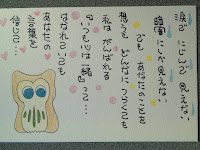 涙で にじんで 見えない
暗闇にしか見えない
でも あなたのことを
想うと どんなにつらくても
私は がんばれる
『いつも心は一緒』って…
はなれていても
あなたの
言葉を
信じて…